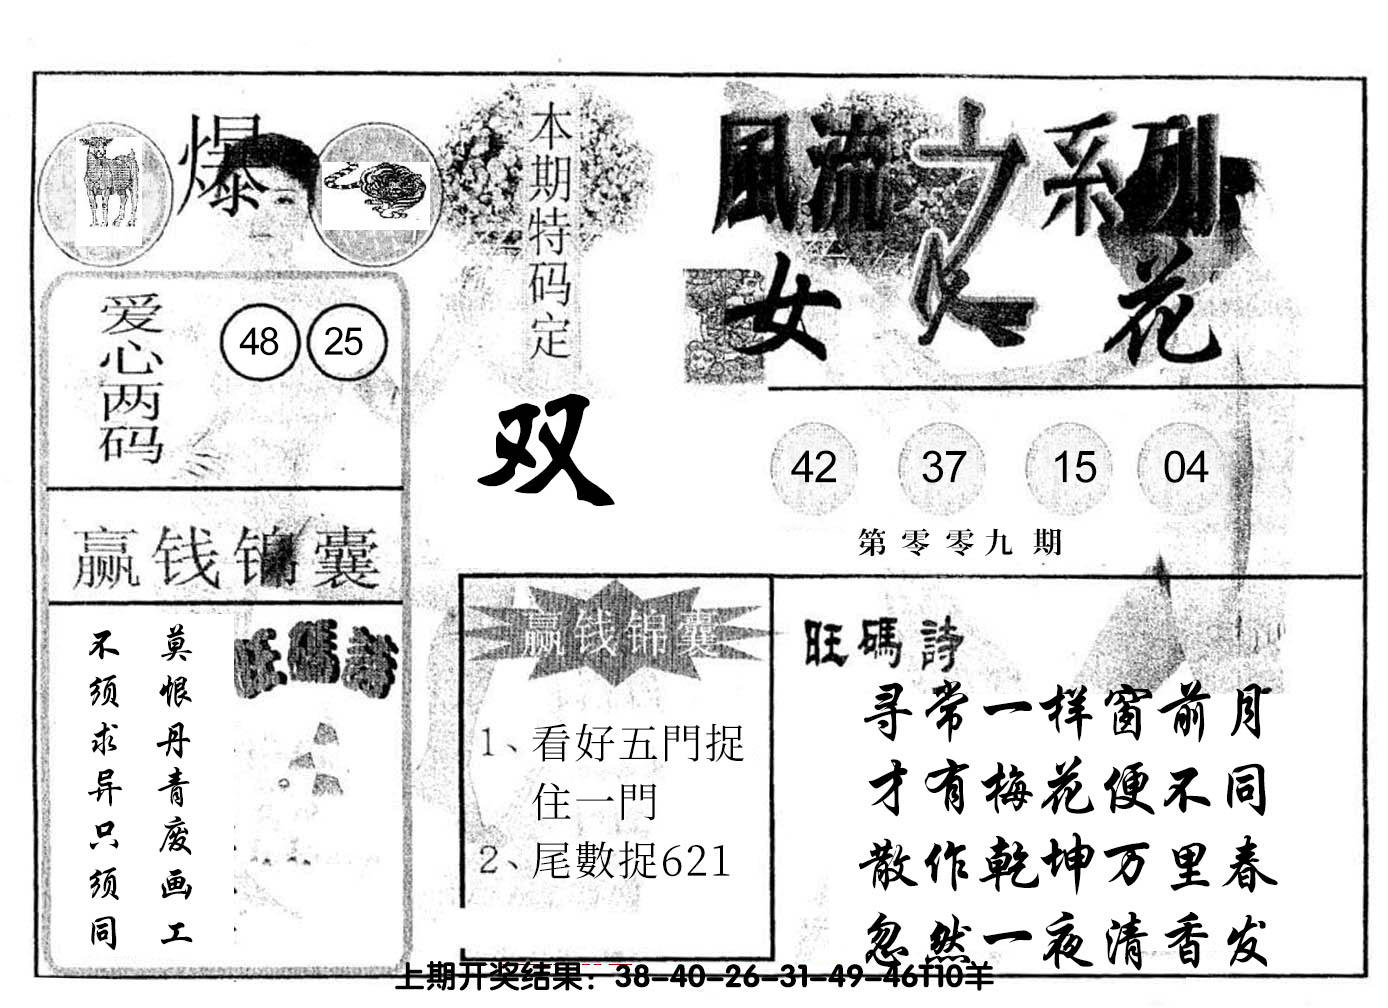 爆
本期特码定
双
風流之系列
女人花
爱心两码
48 25
42 37 15 04
第零零九期
赢钱锦囊
莫恨丹青废画工
不须求异只须同
旺碼詩
赢钱锦囊
1、看好五門捉
住一門
2、尾數捉621
旺碼詩
寻常一样窗前月
才有梅花便不同
散作乾坤万里春
忽然一夜清香发
上期开奖结果：38-40-26-31-49-46T10羊